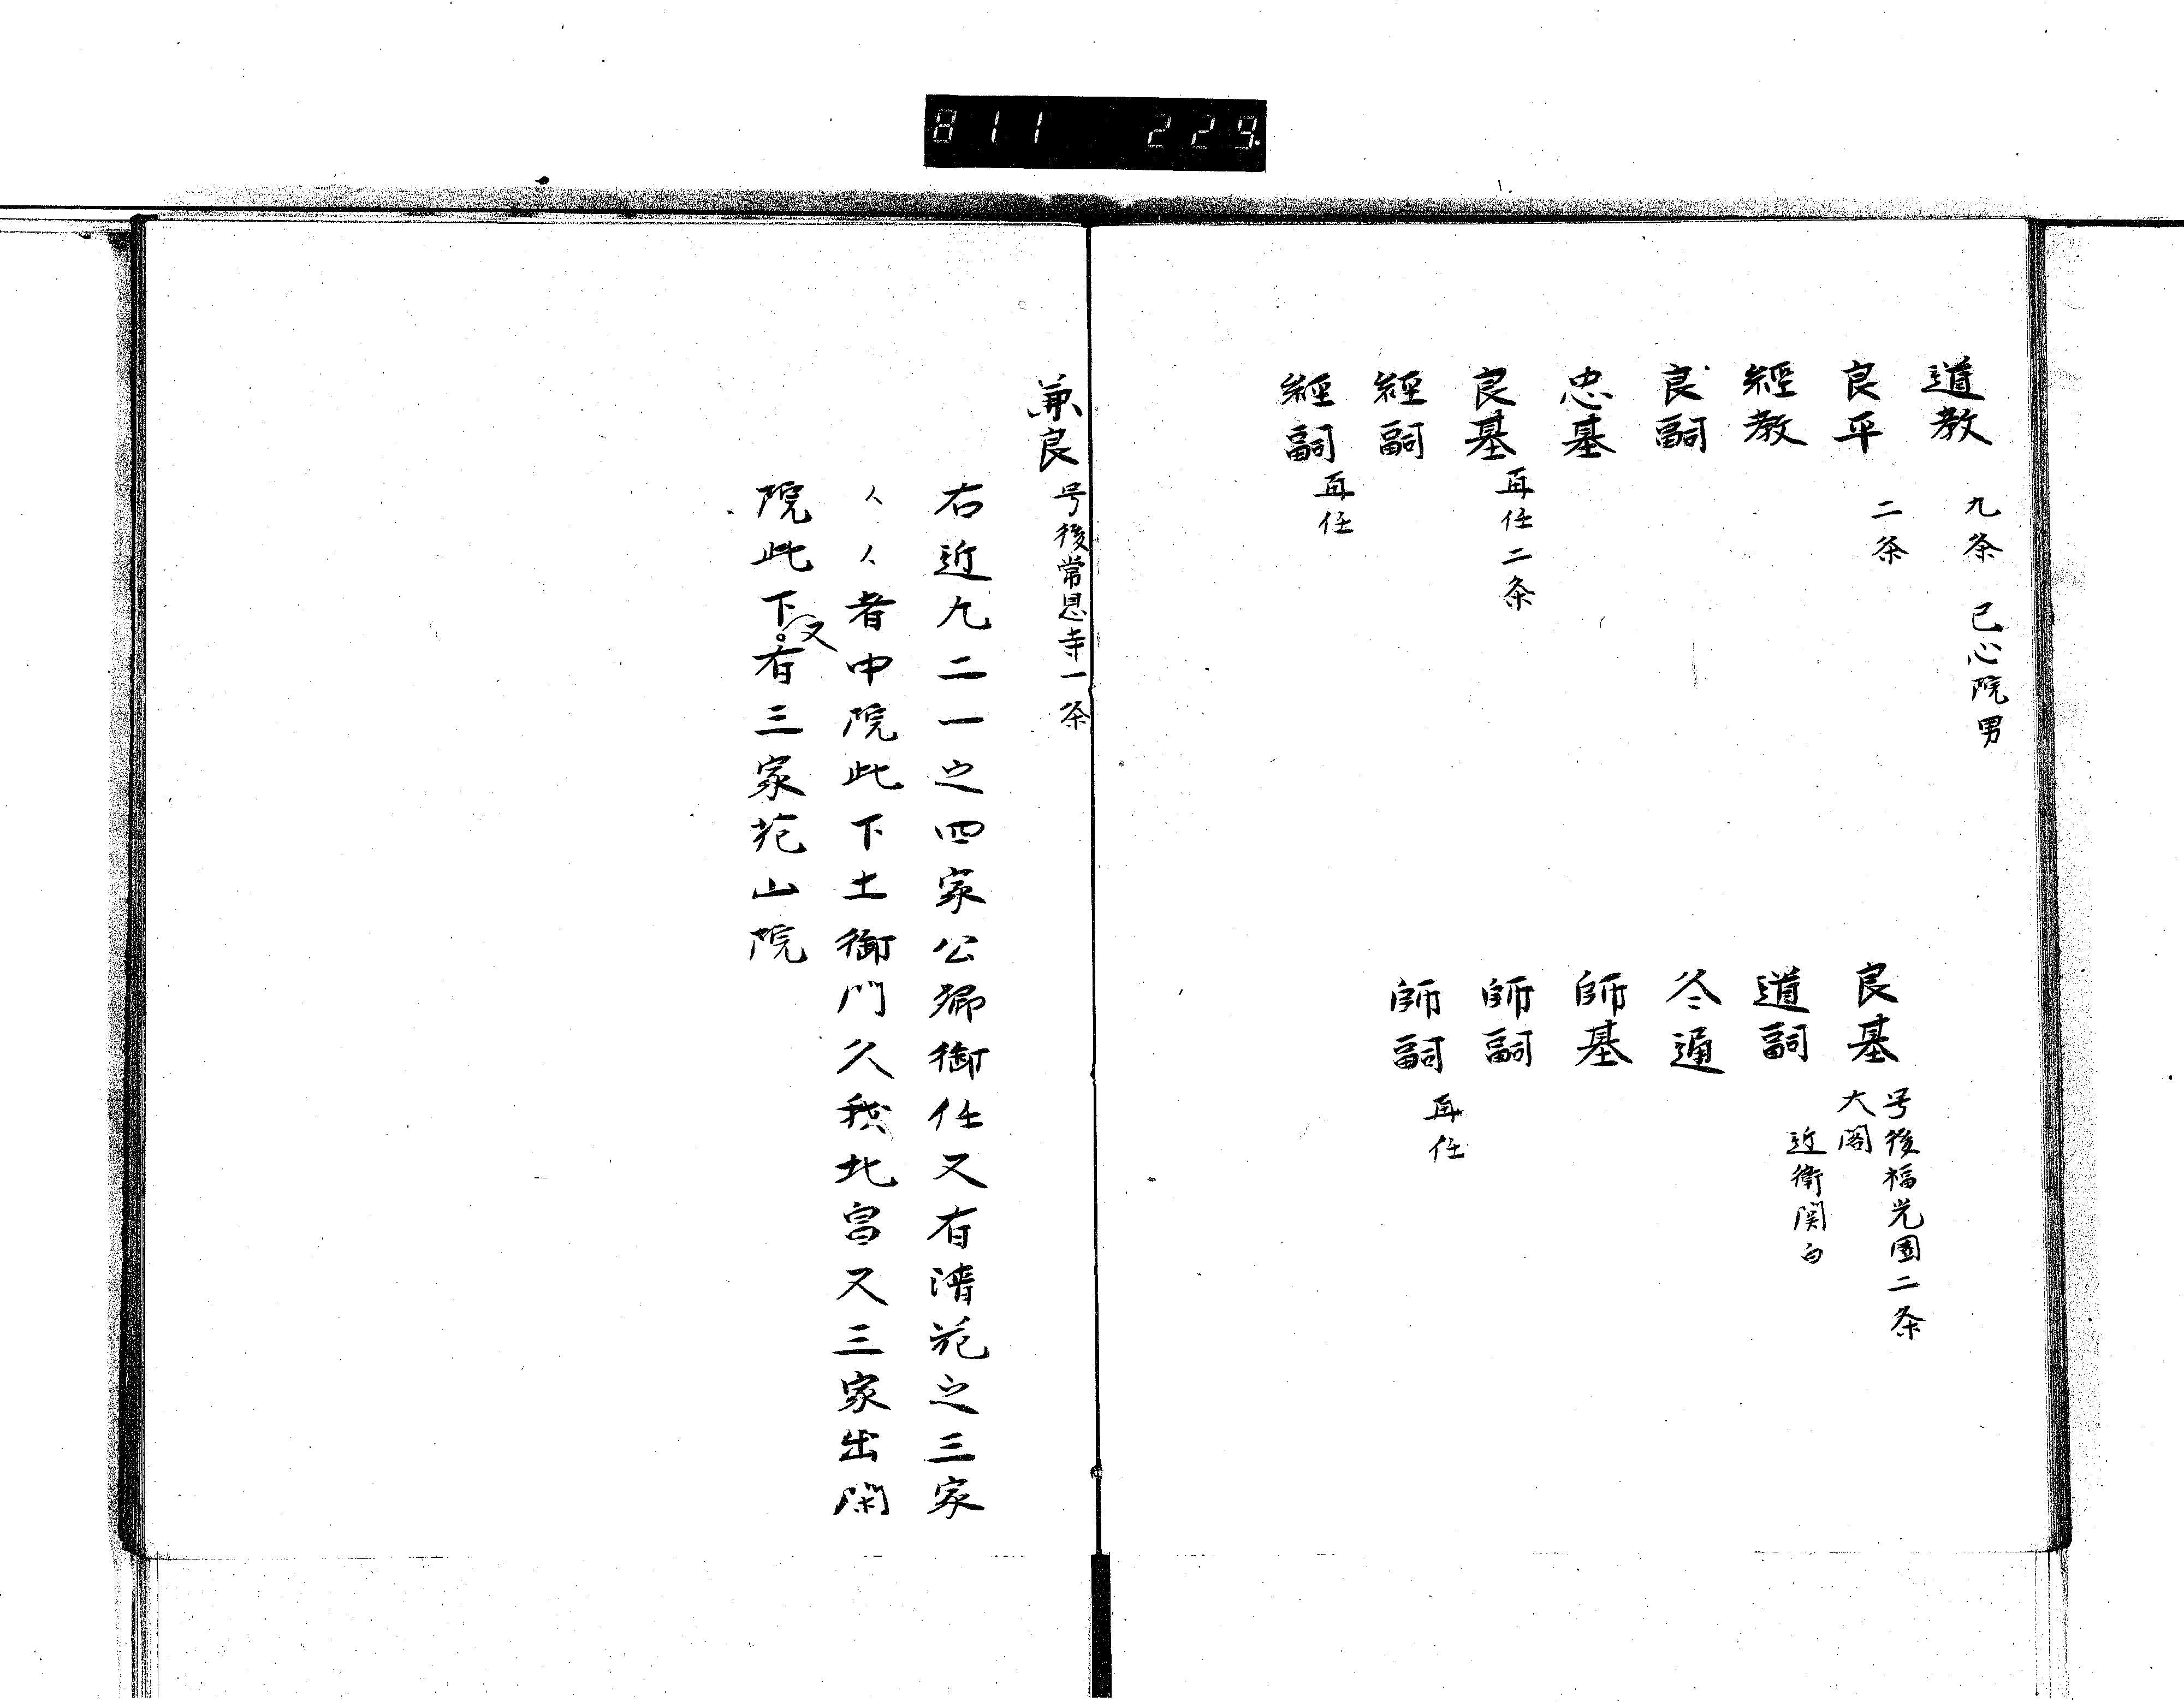 811 229.
道教 九条 己心院男
良平 二条
經教
良嗣
忠基
良基 再任二条
經嗣
經嗣 再任
良基 号後福光園二条
大閤
道嗣 近衛関白
冬通
師基
師嗣
師嗣 再任
兼良 号後常恩寺一条
右近九二一之四家公卿御任又有清花之三家
々々者中院此下土御門久我北畠又三家出閑
院此下又有三家花山院